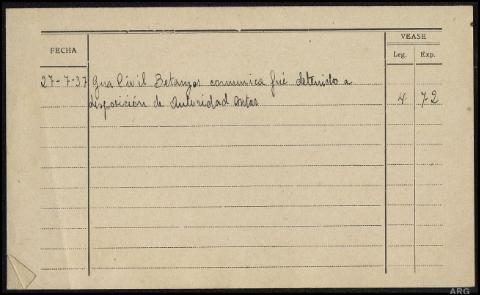 VEASE
FECHA
Leg. Exp.
27-7-37 Gua Civil Betanzos comunica fué detenido a
disposición de autoridad
4 72
ARG